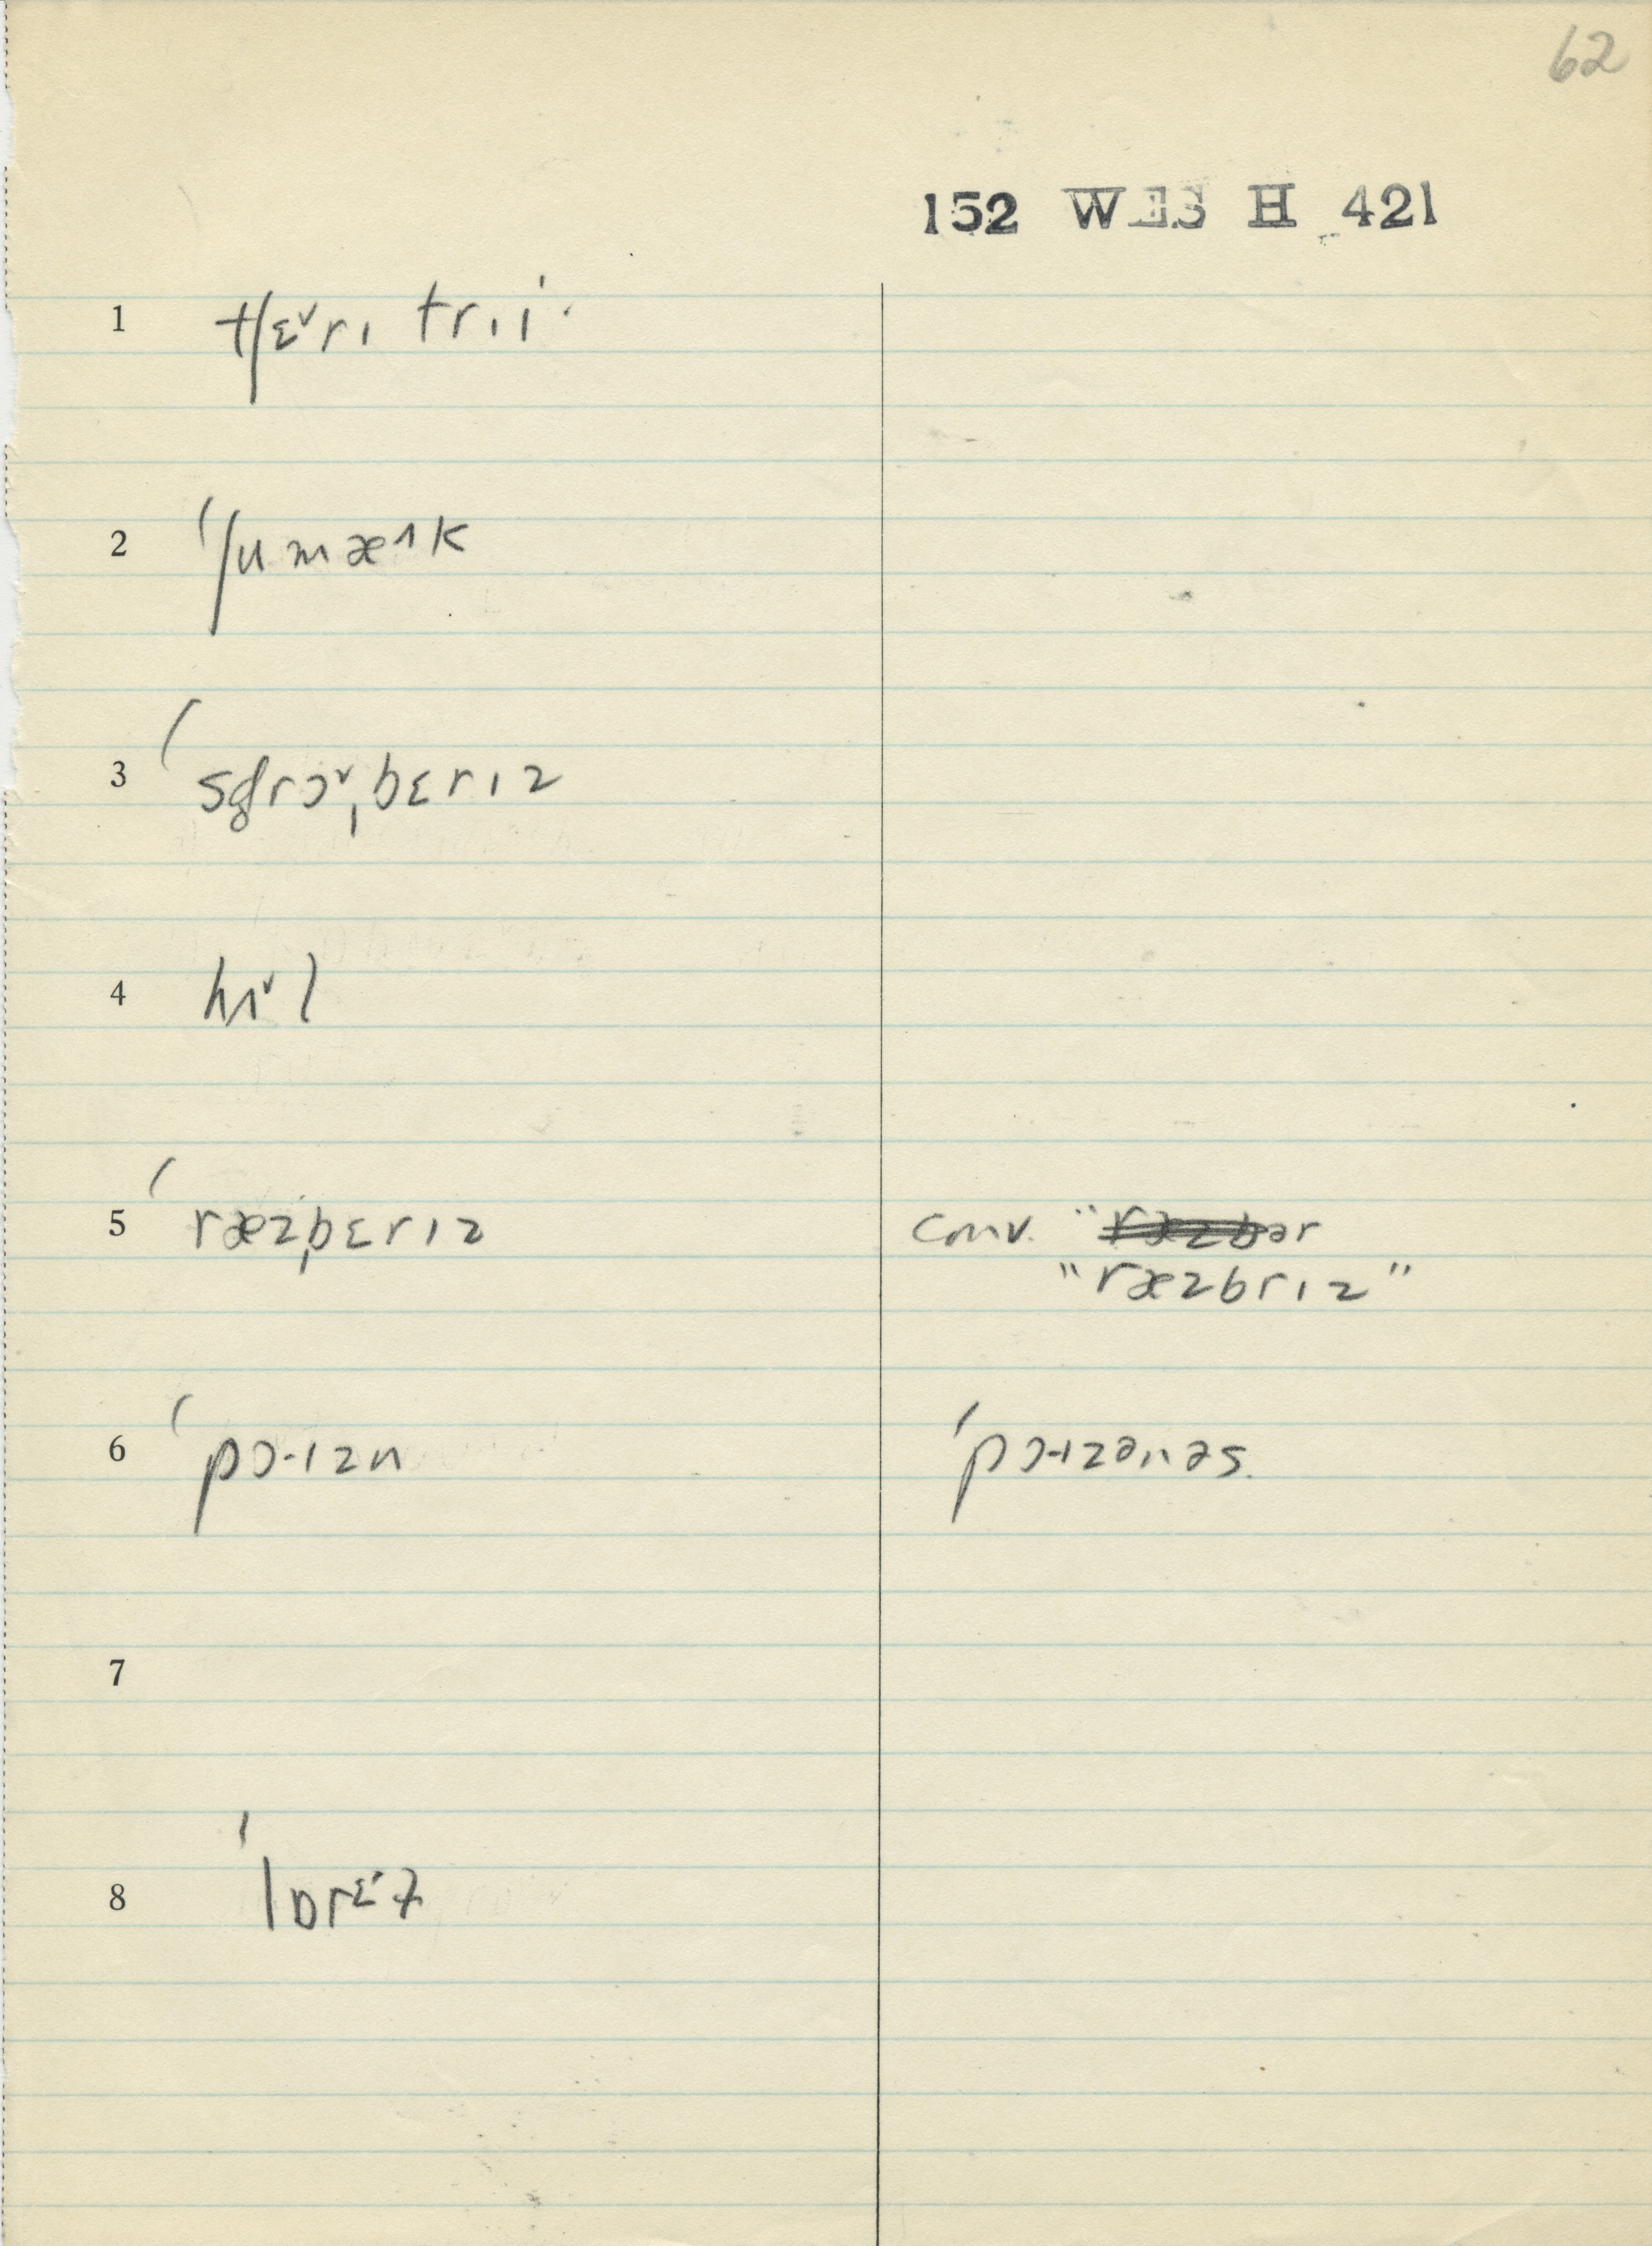 62
152 WES H 421
1 tʃɛ˅rɪ trɪi·
2 ˈʃumæ˄k
3 ˈsd̥rɔ˅ˌbɛrɪz
4 hɪ˅l
5 ˈræzˌbɛrɪz conv. "ræzbər
"ræzbrɪz"
6 ˈpɔ·ɪzn ˈpɔ·ɪzənəs.
7
8 ˈlɒrɛ˔ɫ